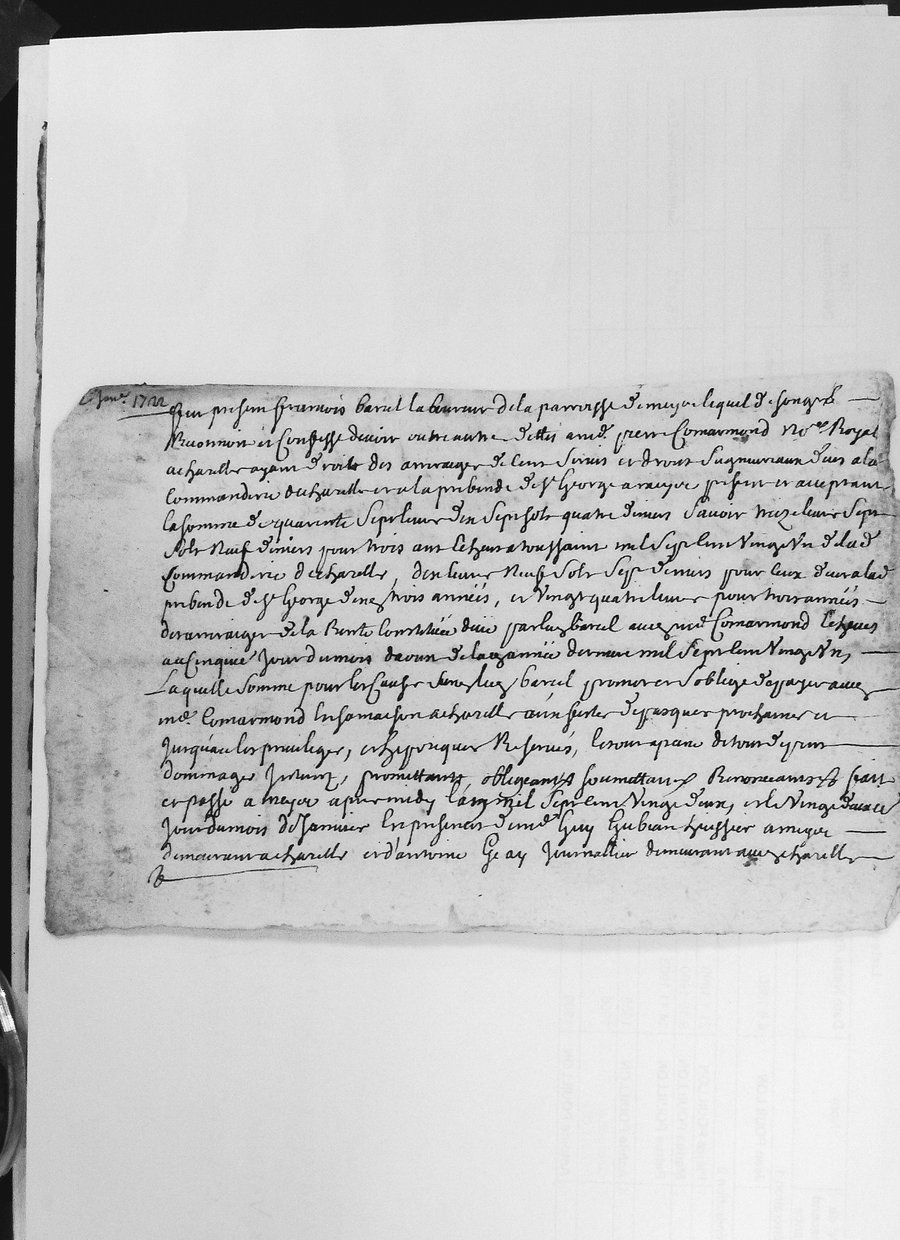 Janv. 1722
Fut présent françois barcel laboureur de la parroisse de meys lequel de son gré
Reconnoit et Confesse devoir outre autre dettes a me. pierre Comarmond no.re Royal
a chazelle ayant droits des arreages de cens servis et droits seigneuriaux deus a la
Commanderie de chazelle et a la prebende de st George a meys présent et acceptant
la somme de quarente sept livre dix sept sols quatre deniers savoir treize livre sept
sols neuf deniers pour trois ans écheus a toussaint mil sept cent vingt un de la d.
Commanderie de chazelle, dix livre neuf sols sept deniers pour ceux deus a la d.
prebende de st George dix trois années, et vingt quatre livre pour trois années
des arreages de la Rente Constituée deue par luy barcel aud. me. Comarmond échues
au Cinquie. jour du mois daoust de lad. année derniere mil sept cent vingt un,
Laquelle somme pour les Causes led. barcel promet et s'oblige de payer aud.
me. Comarmond en sa maison a chazelle aux festes de pasques prochaines et
jusqu'a ce les privileges, et hypoteques Reservés, le tout a peine de tous depens
dommages interest, promettants obligeants soumettants Renonceants fait
et passé a meys apres midy l'an mil sept cent vingt deux, et le vingt deuxie
jour du mois de Janvier en presence de me. Guy Gubian huissier a meys
demeurant a chazelle et d'antoine Geay journallier demeurant aud. chazelle